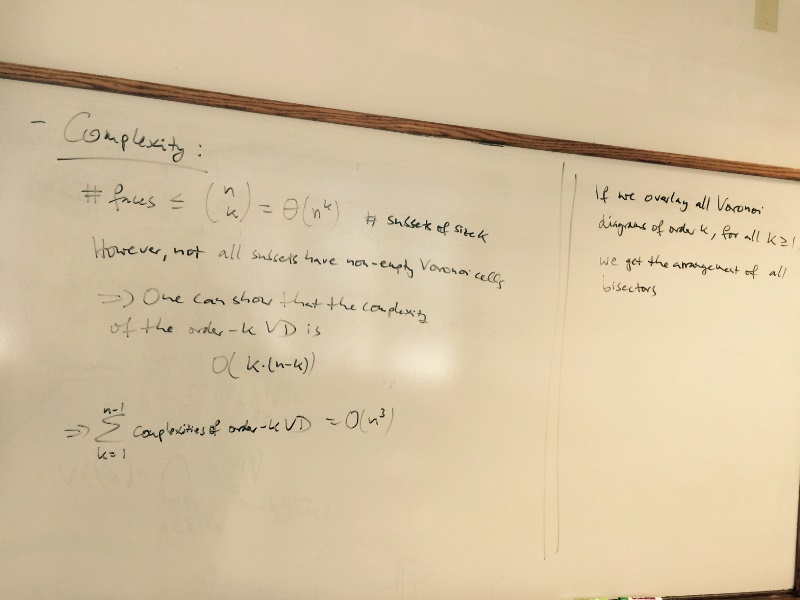 - Complexity:
# faces ≤ (n k) = Θ(n^k) # subsets of size k
However, not all subsets have non-empty Voronoi cells
=> One can show that the complexity
of the order-k VD is
O(k·(n-k))
=> ∑_{k=1}^{n-1} complexities of order-k VD = O(n^3)
If we overlay all Voronoi
diagrams of order k, for all k≥1,
we get the arrangement of all
bisectors